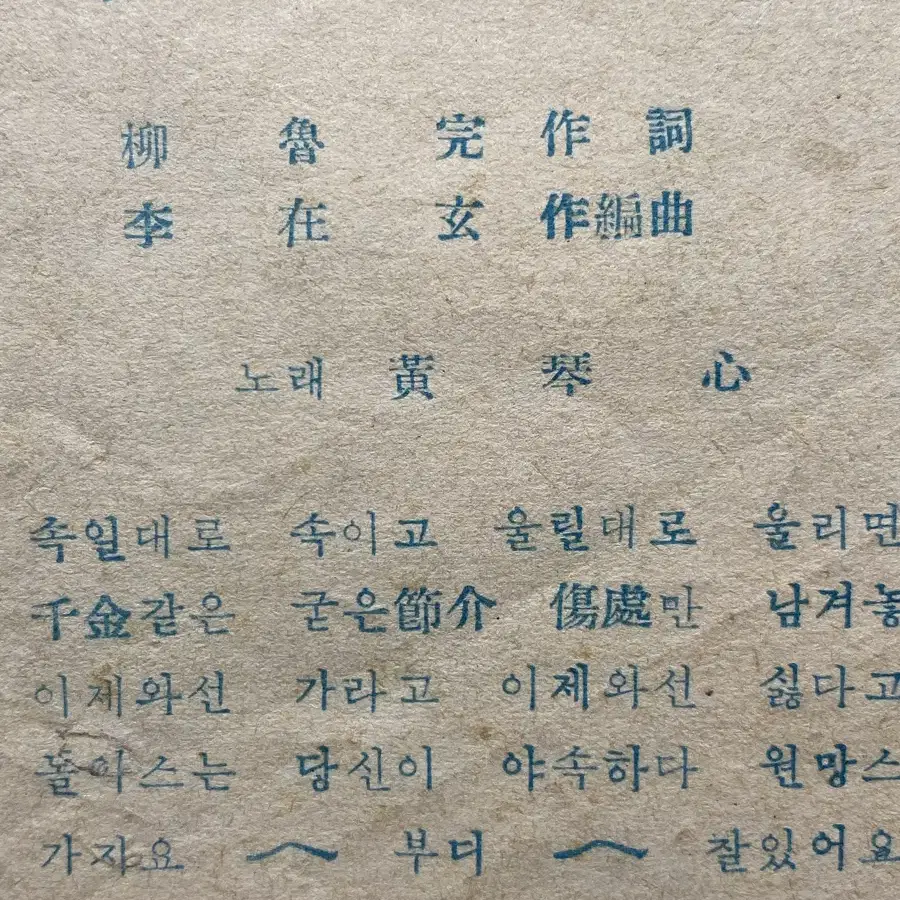 柳魯完 作詞
李在玄 作編曲
노래 黃琴心
속일대로 속이고 울릴대로 울리면
千金같은 굳은節介 傷處만 남겨놓
이제와선 가라고 이제와선 싫다고
돌아스는 당신이 야속하다 원망스
가자요 〳〵 부디 〳〵 잘있어요